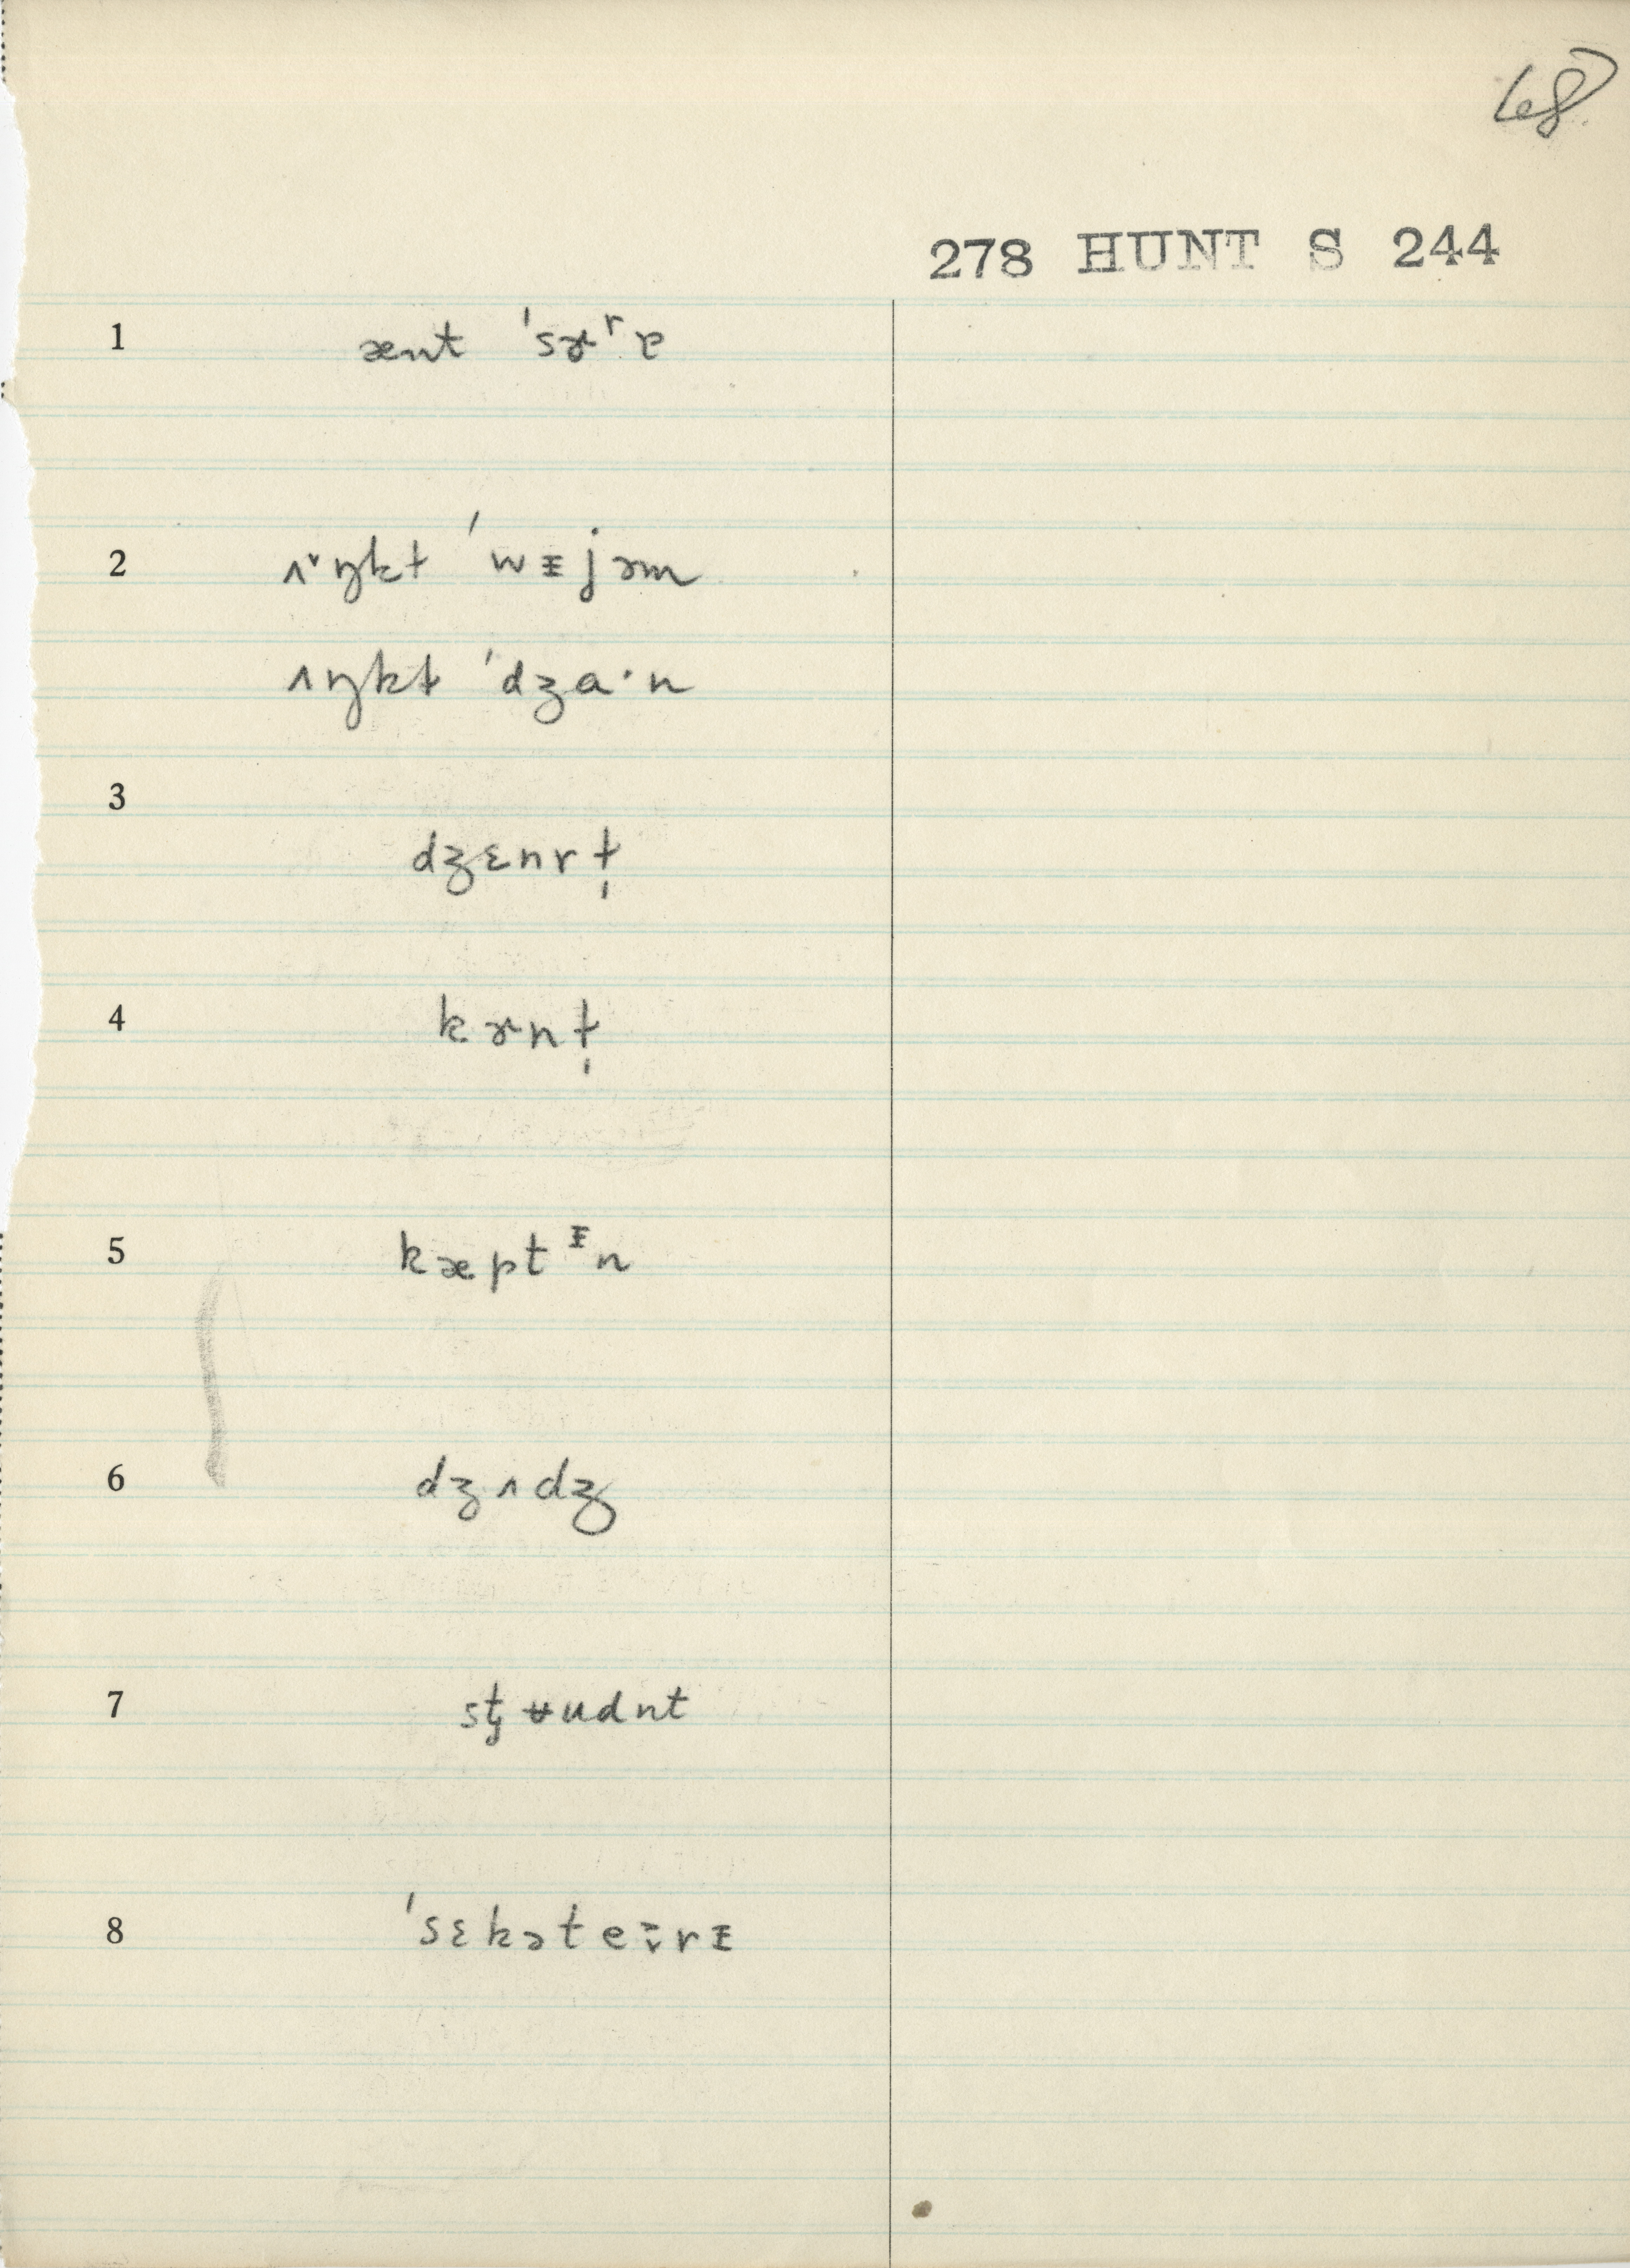 68
278 HUNT S 244
1 ænt ˈsɚʳɐ
2 ʌ˅ŋkɫ ˈwᵻjəm
ʌŋkɫ ˈdʒaˑn
3 dʒɛnrɫ̩
4 kɚnɫ̩
5 kæptᵻn
6 dʒʌdʒ
7 stʉudnt
8 ˈsɛkəteːrᵻ